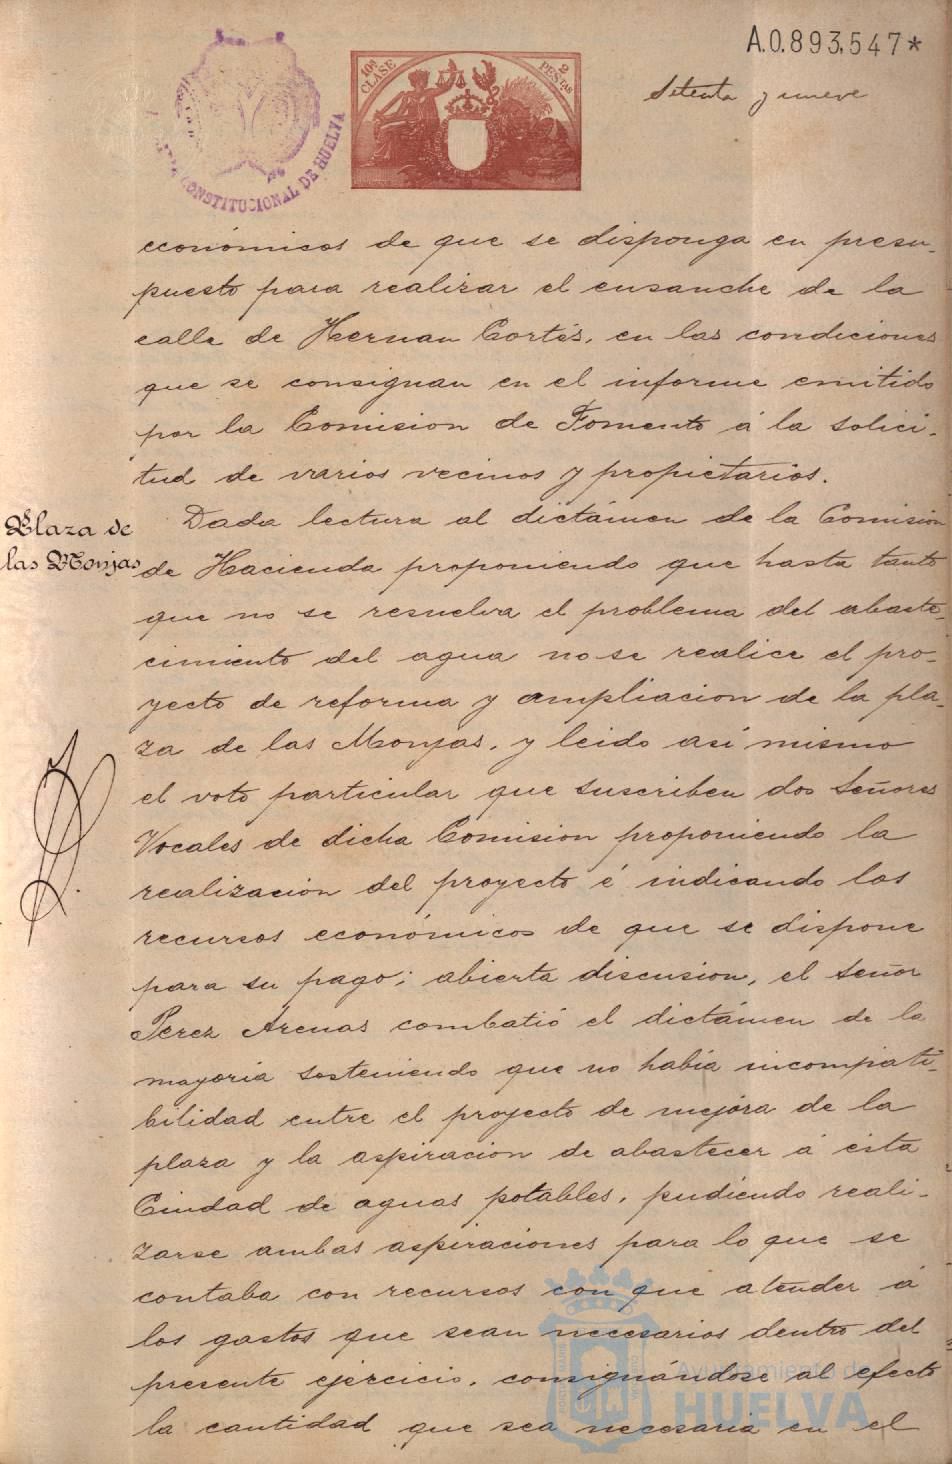 A.0.893,547*
10ª CLASE
2 PESTAS
CONSTITUCIONAL DE HUELVA
Setenta y nueve
económicos de que se disponga en presu-
puesto para realizar el ensanche de la
calle de Hernan Cortés, en las condiciones
que se consignan en el informe emitido
por la Comision de Fomento á la solici-
tud de varios vecinos y propietarios.
Plaza de
las Monjas
Dada lectura al dictámen de la Comision
de Hacienda proponiendo que hasta tanto
que no se resuelva el problema del abaste-
cimiento del agua no se realice el pro-
yecto de reforma y ampliacion de la pla-
za de las Monjas, y leido asi mismo
el voto particular que suscriben dos Señores
Vocales de dicha Comision proponiendo la
realización del proyecto é indicando los
recursos económicos de que se dispone
para su pago; abierta discusion, el Señor
Perez Arenas combatió el dictámen de la
mayoria sosteniendo que no había incompati-
bilidad entre el proyecto de mejora de la
plaza y la aspiracion de abastecer á esta
Ciudad de aguas potables, pudiendo reali-
zarse ambas aspiraciones para lo que se
contaba con recursos con que atender á
los gastos que sean necesarios dentro del
presente ejercicio, consignándose al efecto
la cantidad que sea necesaria en el
Ayuntamiento de
HUELVA